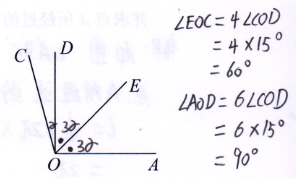 ∠EOC = 4∠COD
= 4 × 15°
= 60°
∠AOD = 6∠COD
= 6 × 15°
= 90°
C
D
E
∂ 3∂
3∂
O
A